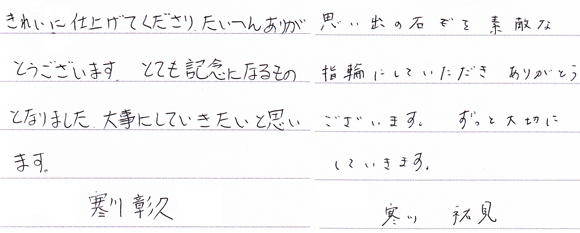 きれいに仕上げてくださり、たいへんありが
とうございます。とても記念になるもの
となりました。大事にしていきたいと思い
ます。
寒川 彰久
思い出の石ぞを素敵な
指輪にしていただき ありがとう
ございます。 ずっと大切に
していきます。
寒川 祐見